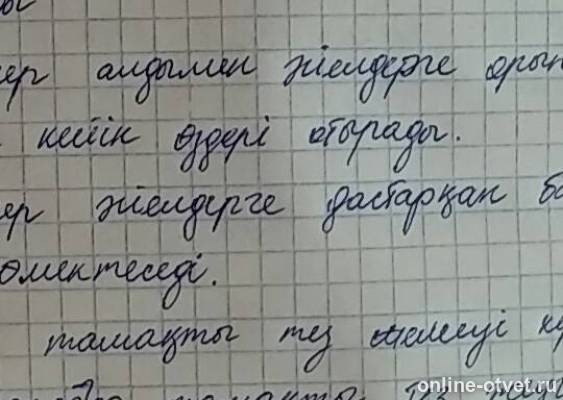 ер алдымен әйелдерге орын
кейін өздері отырады.
ер әйелдерге дастарқан ба
өмектеседі.
тамақты тез жемеуі к
online-otvet.ru